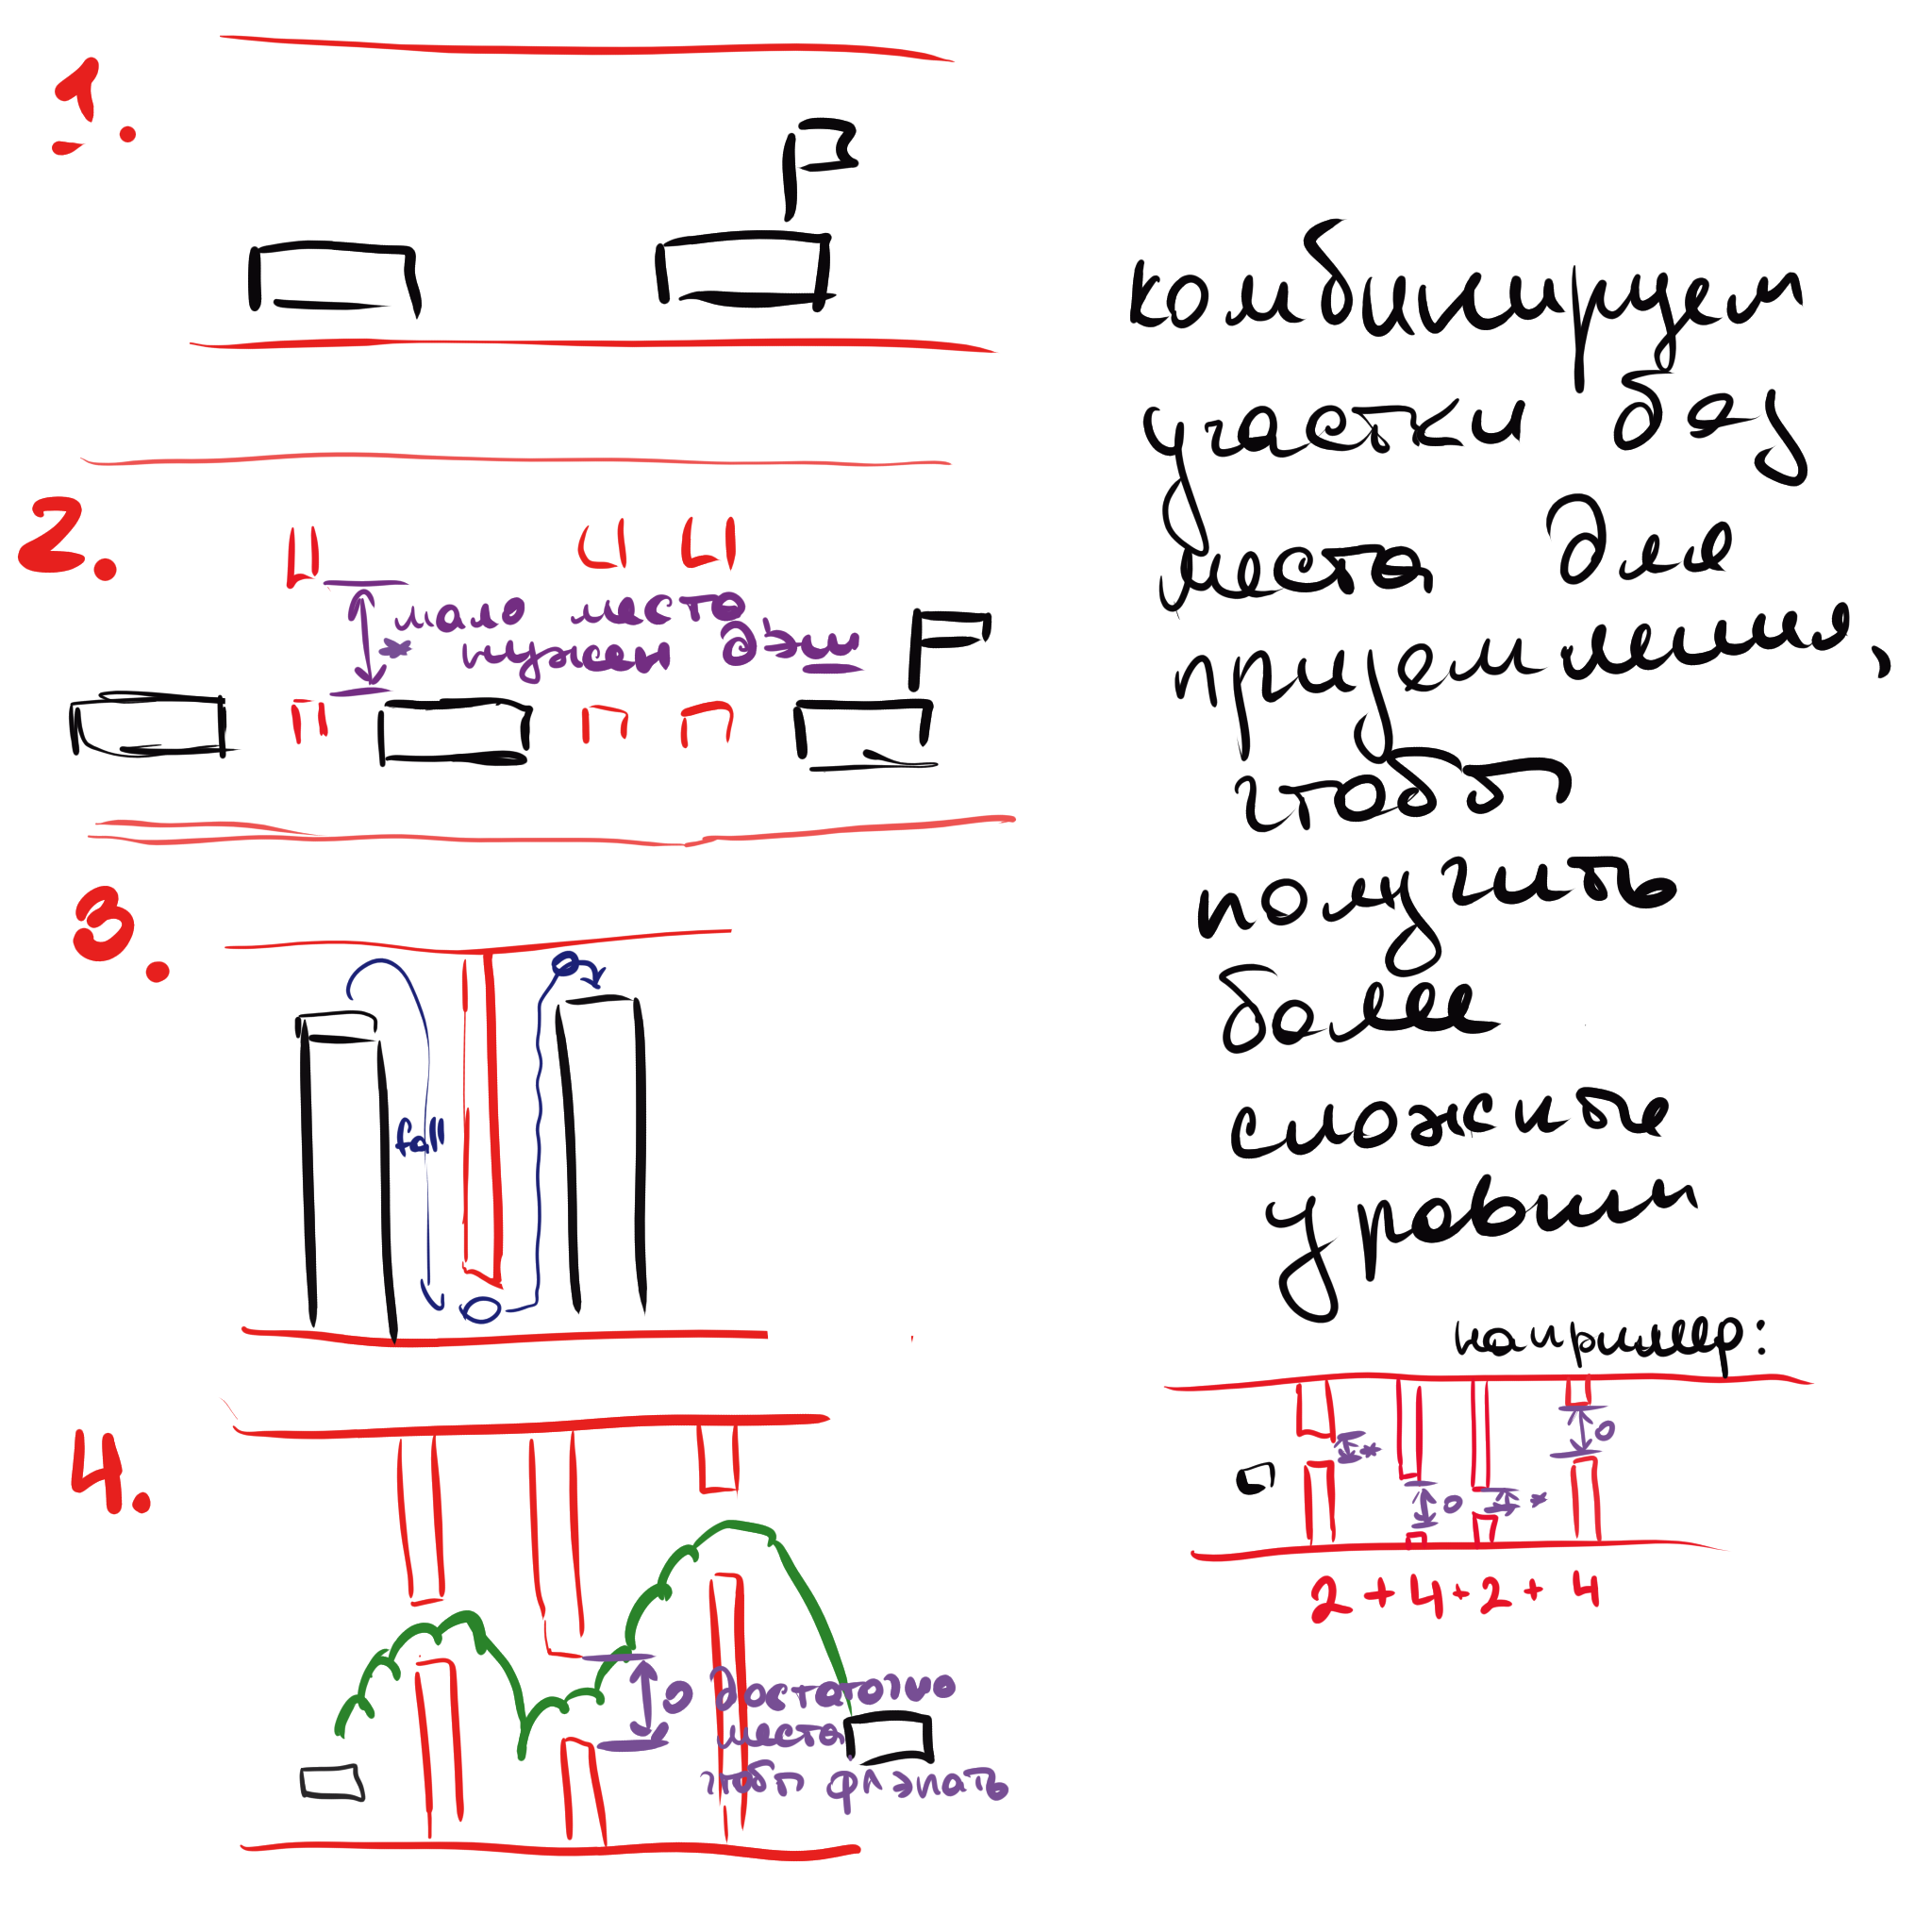 1.
2.
* мало места,
дэш
3.
fall
4.
о достаточно
места
чтобы флэпать
комбинируем
участки без
места для
приземления,
чтобы
получить
более
сложные
уровни
например:
* о * о
2 + 4 + 2 + 4